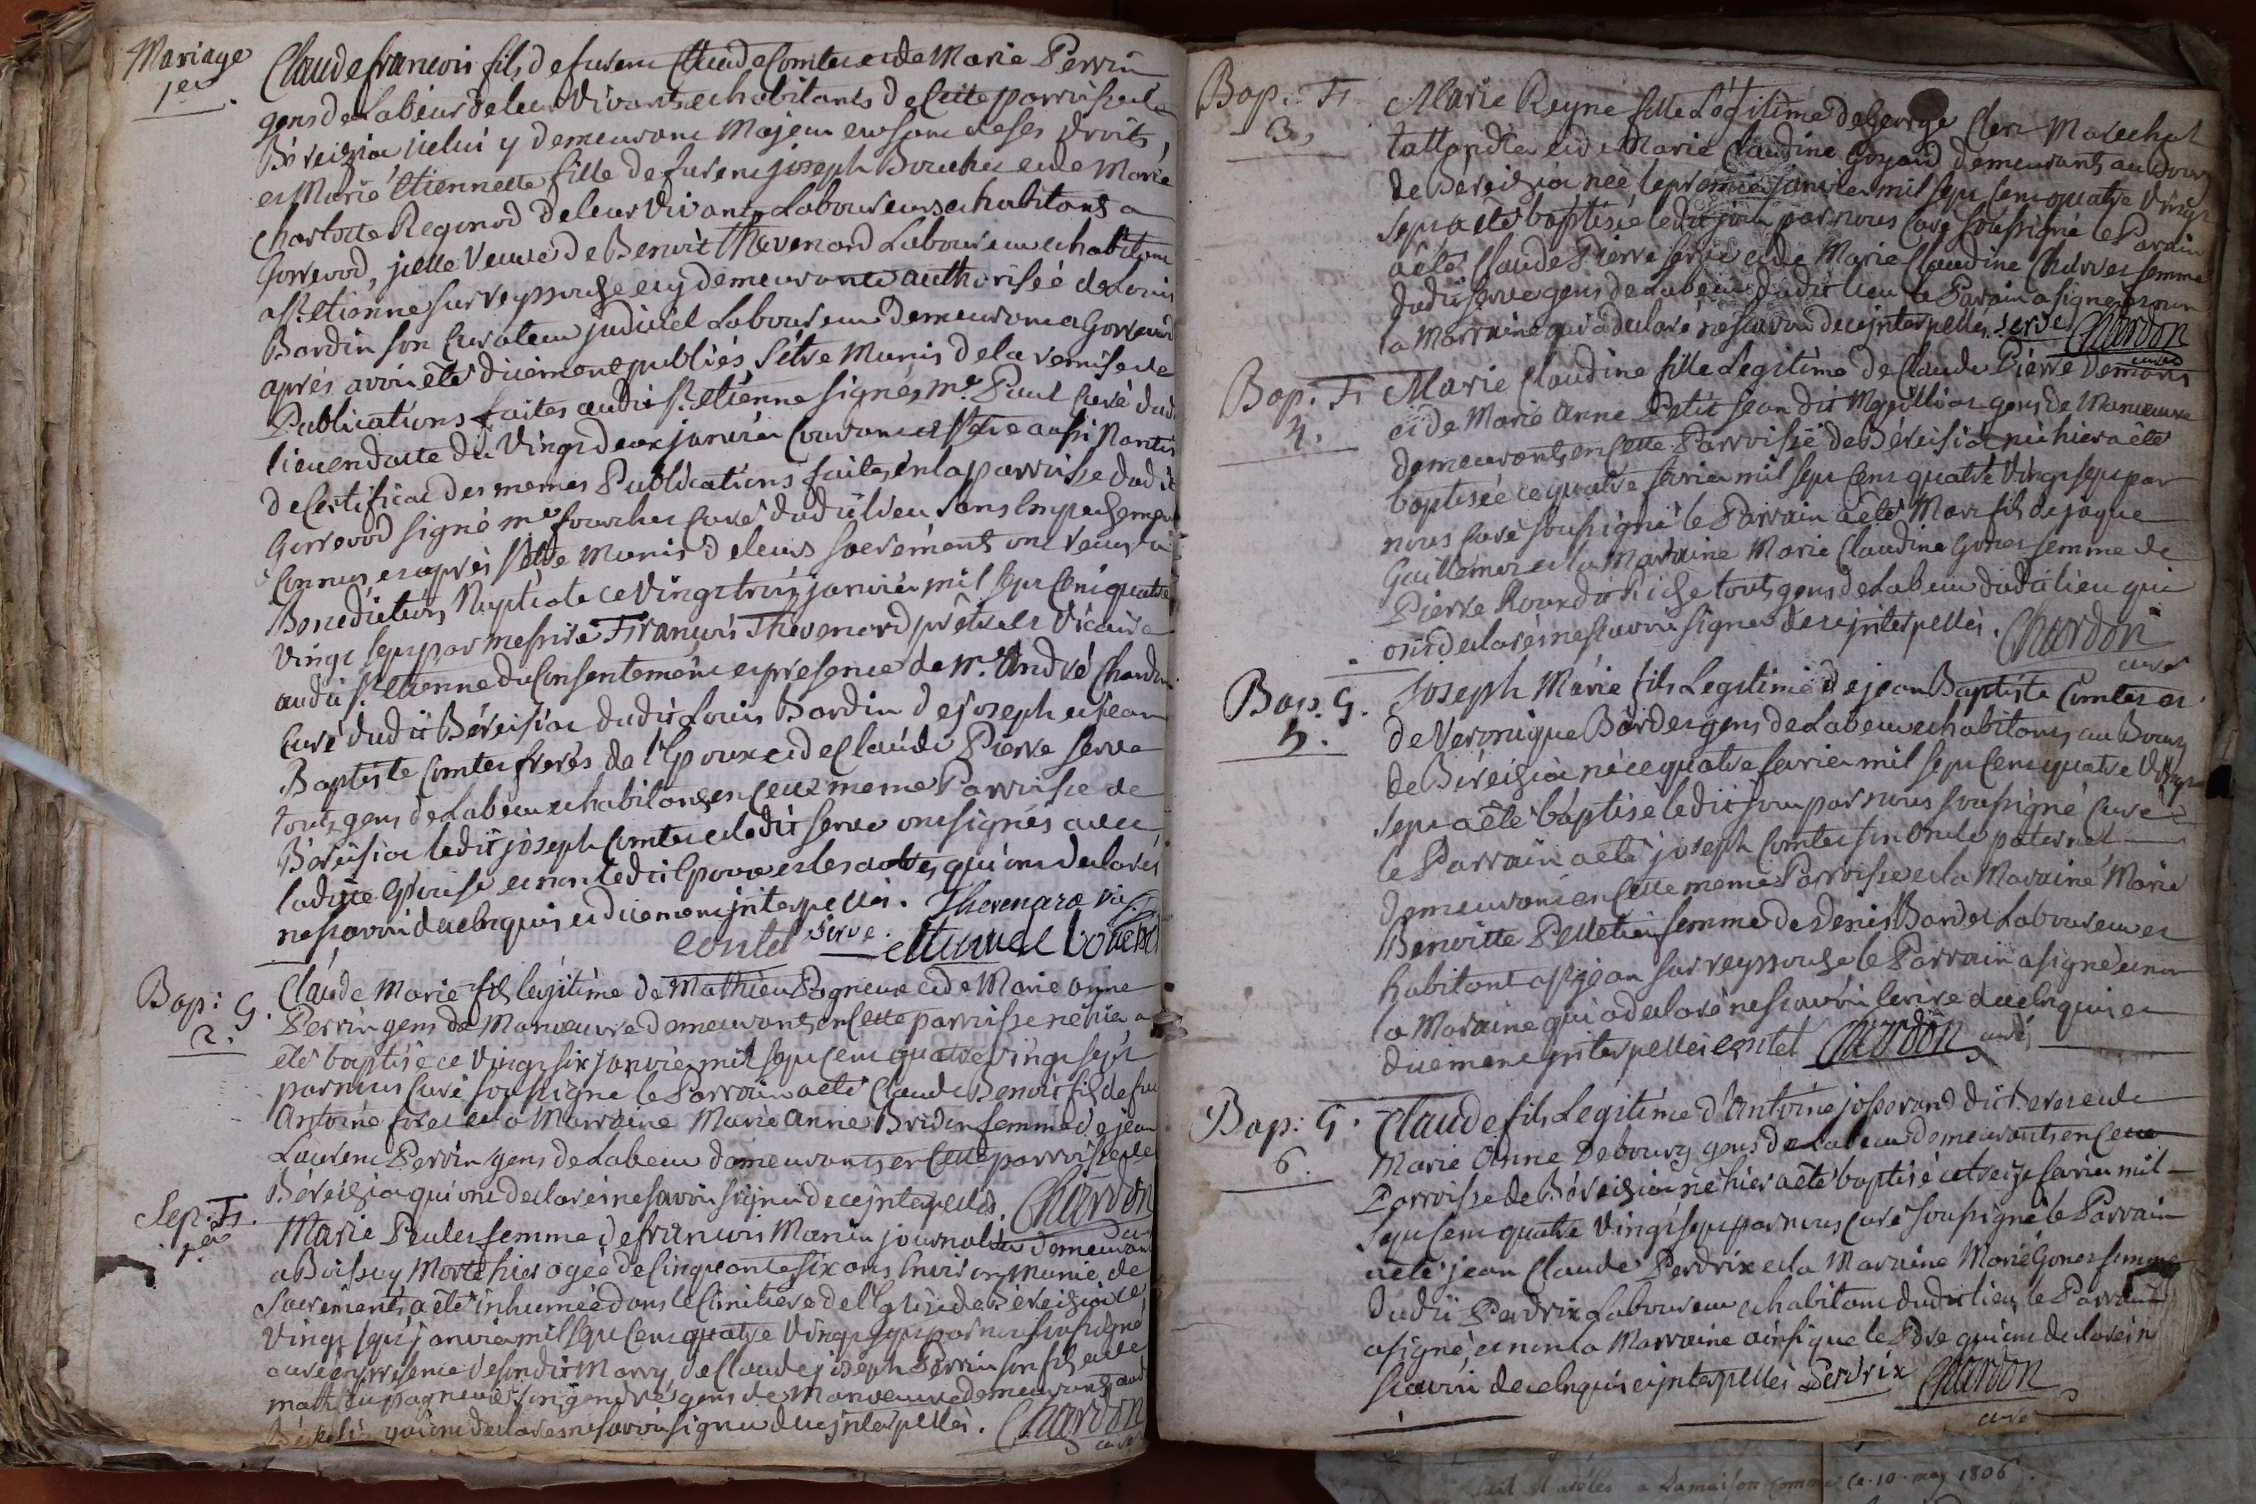 Mariage
1er
Claude francois fils de furent Claude Comtet et de Marie Perrin
gens de Labeur de leur Vivant et habitants de Cette parroisse de
Béreiziat jcelui y demeurant Majeur et usant de ses droits,
et Marie Etiennette fille de furent joseph Bouchet et de Marie
Charlotte Reginod de leur Vivant Laboureurs et habitants a
Gorrevod, jcelle Veuve de Benoit Thevenard Laboureur et habitant
a St Etienne sur reyssouze et y demeurante authorisée de Louis
Bardin son Curateur judiciel Laboureur demeurant a Gorrevod
aprés avoir été düement publiés s'étre Munis de la remise de
Publications faites audit St Etienne signés Mre Paul Curé dudit
lieu en datte du Vingt deux janvier Courant et s'etre aussi Nantis
de Certificat des memes Publications faites en la parroisse dudit
Gorrevod signé mre fourcher Curé dudit lieu sans Empechement
Connus et aprés s'etre Munis de leurs sacréments ont reçus la
Benediction Nuptiale ce Vingt trois janvier mil sept Cent quatre
Vingt sept par messire Francois Thevenard prêtre et Vicaire
audit St Etienne du Consentement et presence de Mr. André Chardon
Curé dudit Béreisiat dudit Louis Bardin de joseph et jean
Baptiste Comtet frerés de l'Epoux et de Claude Pierre Serve
touts gens de Labeur et habitants en Cette meme Parroisse de
Béreisiat ledit joseph Comtet et ledit Serve ont signés avec
ladite Epouse et non ledit Epoux et les autres qui ont declarés
ne scavoir de ce enquis et düement jnterpellés. Thevenard vic
contet serve. ettiennette bouchet
Bap: G.
2.
Claude Marie fils légitime de Mathieu Pagneux et de Marie anne
Perrin gens de Manoeuvre demeurants en Cette parroisse né hier a
été baptisé ce Vingt six janvier mil sept Cent quatre vingt sept
par nous Curé soussigné le Parrain a eté Claude Benoit fils de feu
Antoine foret et la Marraine Marie Anne Bridon femme de jean
Laurent Perrin gens de Labeur demeurants en Cette parroisse de
Béreiziat qui ont declarés ne savoir signer de ce jnterpellés. Chardon
curé
Sep: F.
1er
Marie Peulet femme de francois Manin journalier demeurant
a Boissey Morte hier agée de Cinquante six ans Environ munie de
Sacrements a été inhumée dans le Cimitiere de l'Eglise de Béreiziat ce
Vingt sept janvier mil sept Cent quatre Vingt sept par nous soussigné
curé en presence de sondit Marry, de Claude joseph Perrin son fils et de
mathieu pagneux son gendre gens de Manoeuvre demeurants audit
Béreisiat qui ont declarés ne savoir signer de ce jnterpellés. Chardon
curé
Bap: F.
3.
Marie Reyne fille Légitime de George Clerc Marechal
tallandier et de Marie Claudine Goyard demeurants au Bourg
de Béreiziat née le premier janvier mil sept cent quatre Vingt
sept a été baptisée ledit jour par nous Curé soussigné le Parain
a été Claude Pierre Serve et de Marie Claudine femme
dudit Serve gens de Labeur dudit lieu le Parain a signé et non
la Marraine qui a declaré ne scavoir de ce jnterpellés. serve Chardon
curé
Bap: F.
4.
Marie Claudine fille Legitime de Claude Pierre Demons
et de Marie Anne Petit jean dit gens de Manoeuvre
demeurants en Cette Parroisse de Béreisiat née hier a été
baptisée ce quatre fevrier mil sept Cent quatre Vingt sept par
nous Curé soussigné le Parrain a été Marc fils de jaque
Guillemot et la Marraine Marie Claudine Gonet femme de
Pierre Roux dit touts gens de Labeur dudit lieu qui
ont declarés ne scavoir signer de ce jnterpellés. Chardon
curé
Bap. G.
5.
Joseph Marie fils Legitime de jean Baptiste Comtet et
de Veronique Bardet gens de Labeur et habitants au Bourg
de Béreiziat né ce quatre fevrier mil sept Cent quatre Vingt
sept a été baptisé ledit jour par nous soussigné Curé
le Parrain a eté joseph Comtet son oncle paternel
demeurant en Cette meme Parroisse et la Maraine Marie
Benoitte Pelletier femme de Denis Bardet Laboureur et
habitant a St jean sur reyssouze le Parrain a signé et non
la Maraine qui a declaré ne scavoir Ecrire de ce enquis et
düement jnterpellés contet Chardon curé
Bap: G.
6.
Claude fils Legitime d'Antoine josserand dit et de
Marie Anne Debourg gens de Labeur demeurants en Cette
Parroisse de Béreiziat né hier a été baptisé ce treize fevrier mil
sept Cent quatre Vingt sept par nous Curé soussigné le Parrain
a été jean Claude Perdrix et la Maraine Marie Gonet femme
dudit Perdrix Laboureur et habitant dudit lieu, le Parrain
a signé et non la Marraine ainsi que le Pere qui ont declarés ne
scavoir de ce enquis et jnterpellés Perdrix Chardon
curé
a Lamaison Commune Ce .10. may 1806